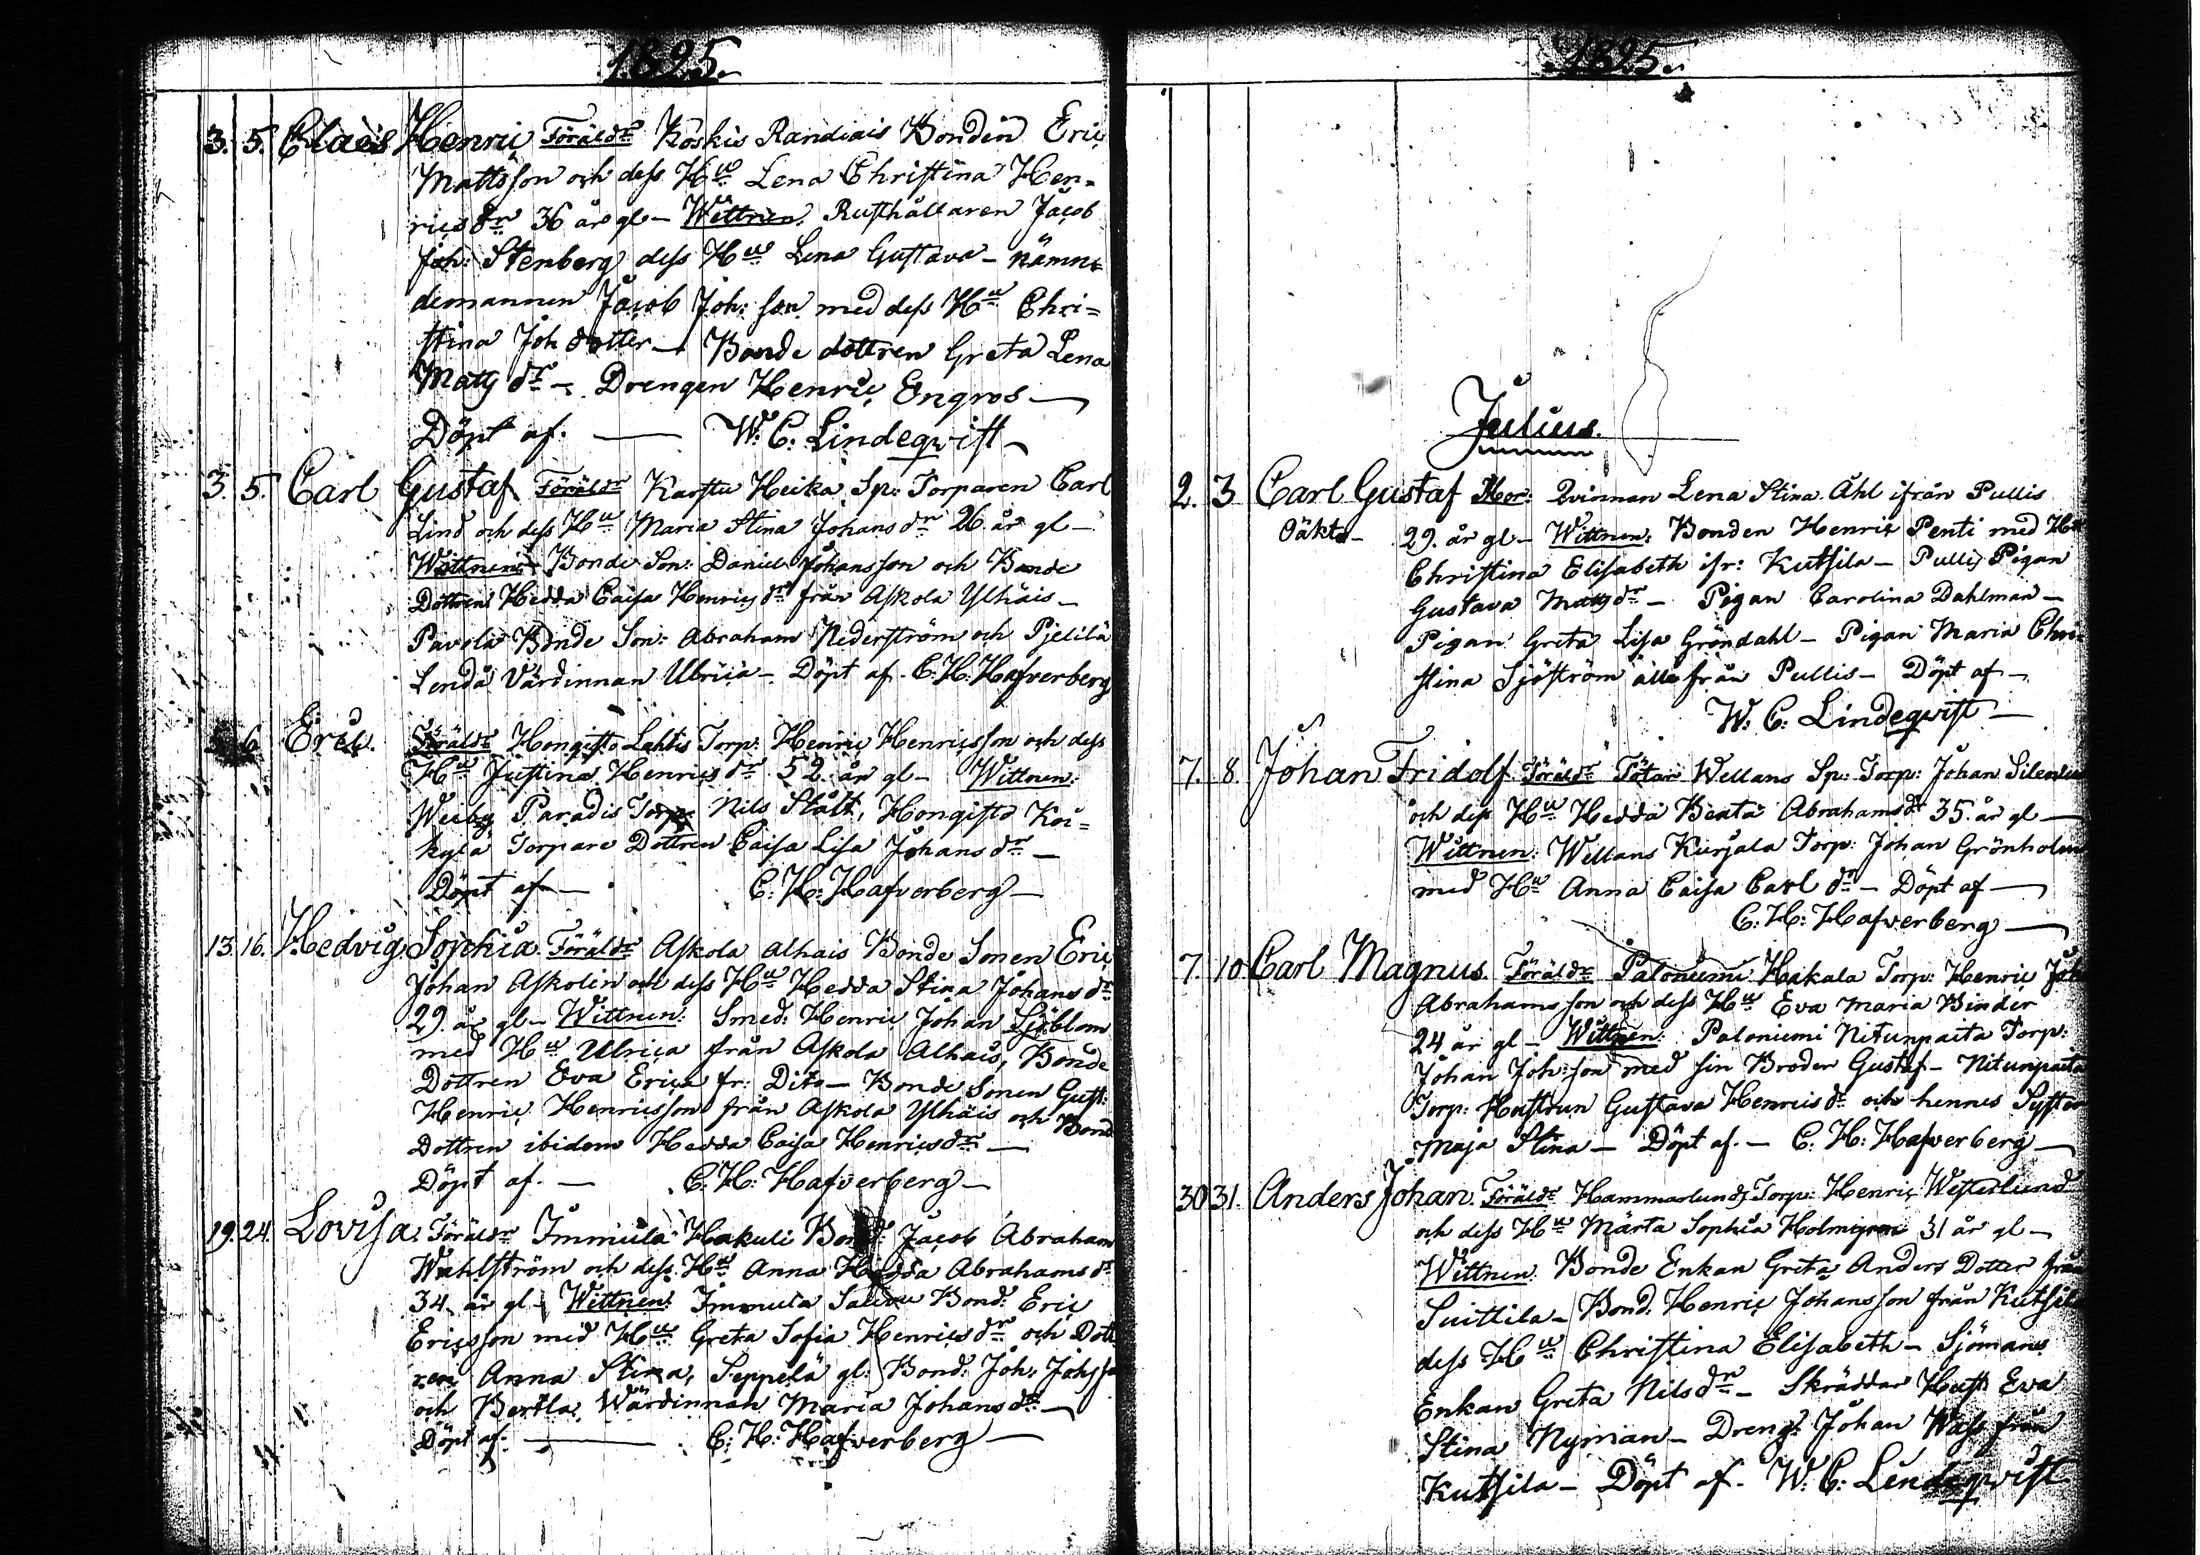 1825.
3. 5. Claës Henric Föräldr Koskis Randiais Bonden Eric
Mattsson och dess Hu Lena Christina Hen=
rics dr 36 år gl - Wittnen: Rusthållaren Jacob
Joh: Stenberg dess Hu Lena Gustava - Nämn=
demannen Jacob Joh: son med dess Hu Chri=
stina Joh dotter - Bonde dottren Greta Lena
Matts dr - Drengen Henric Engros -
Döpt af. - W. C. Lindeqvist
3. 5. Carl Gustaf Föräldr Karstu Heika Sp: Torparen Carl
Lind och dess Hu Maria Stina Johans dr 26 år gl -
Wittnen: Bonde Son: Daniel Johansson och Bonde
Dottren Hedda Caisa Henrics dr från Askola Ylhäis -
Pavola Bonde Son: Abraham Nederström och Pjelilä
Lenda Värdinnan Ulrica - Döpt af. C. H. Hafverberg
6. Eric. Föräldr Hongisto Lahtis Torp: Henric Henricsson och dess
Hu Justina Henrics dr 52 år gl - Wittnen:
Weiby Paradis Torp: Nils Stålt, Hongisto Koi=
kylä Torpare Dottren Caisa Lisa Johans dr -
Döpt af - C: H: Hafverberg -
13. 16. Hedvig Sophia. Föräldr Askola Alhais Bonde Sonen Eric
Johan Askolin och dess Hu Hedda Stina Johans dr
29 år gl - Wittnen: Smed: Henric Johan Sjöblom
med Hu Ulrica från Askola Alhais, Bonde
Dottren Eva Erica fr: Dito - Bonde Sonen Gust:
Henric Henricsson från Askola Ylhäis och Bond
Dottren ibidem Hedda Caisa Henrics dr -
Döpt af. - C: H: Hafverberg -
19. 24. Lovisa. Föräldr Immila Hakuli Bond: Jacob Abraham
Wahlström och dess Hu Anna Hedda Abrahams dr
34 år gl - Wittnen: Immila Bond: Eric
Ericsson med Hu Greta Sofia Henrics dr och Dott
ren Anna Stina, Seppelä gl: Bond: Joh: Johsson
och Bertla Wärdinnan Maria Johans dr -
Döpt af. - C: H: Hafverberg -
1825.
Julius.
2. 3 Carl Gustaf Mor: Qvinnan Lena Stina Åhl ifrån Pullis
Oäkta - 29. år gl - Wittnen: Bonden Henric Penti med Hu
Christina Elisabeth ifr: Kutsila - Pullis Pigan
Gustava Matts dr - Pigan Carolina Dahlman -
Pigan Greta Lisa Gröndahl - Pigan Maria Chri
stina Sjöström alla från Pullis - Döpt af -
W: C: Lindeqvist -
7. 8. Johan Fridolf. Föräldr Tötar Wellans Sp: Torp: Johan Silenius
och dess Hu Hedda Beata Abrahams dr 35 år gl -
Wittnen: Wellans Kurjala Torp: Johan Grönholm
med Hu Anna Caisa Carl dr - Döpt af -
C: H: Hafverberg -
7. 10 Carl Magnus. Föräldr Paloniemi Hakala Torp: Henric Joh
Abrahamsson och dess Hu Eva Maria Binder
24 år gl - Wittnen: Paloniemi Nitunpaita Torp:
Johan Joh: son med sin Broder Gustaf - Nitunpaita
Torp: Hustrun Gustava Henrics dr och hennes Syster
Maja Stina - Döpt af. - C. H: Hafverberg -
30 31. Anders Johan. Föräldr Hammarlunds Torp: Henric Westerlund
och dess Hu Märta Sophia Holmgren 31 år gl -
Wittnen. Bonde Enkan Greta Anders Dotter från
Suittila - Bond. Henric Johansson från Kutsila
dess Hu Christina Elisabeth - Sjömans
Enkan Greta Nils dr - Skräddar Hust: Eva
Stina Nyman - Dreng: Johan Wass från
Kutsila - Döpt af. W. C: Lindeqvist